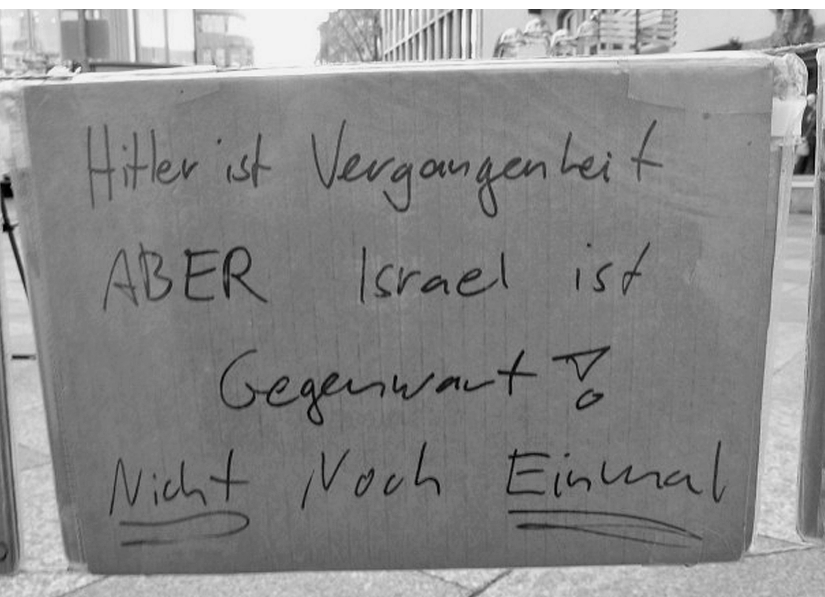 Hitler ist Vergangenheit
ABER Israel ist
Gegenwart!
Nicht Noch Einmal